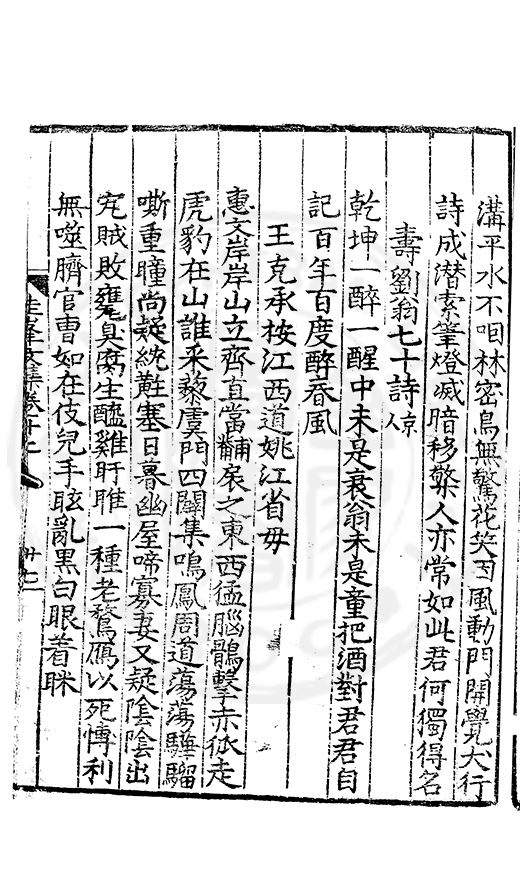 溝平水不咽林密鳥無驚花笑因風動門開覺犬行
詩成潛索筆燈滅暗移檠人亦常如此君何獨得名
壽劉翁七十詩
乾坤一醉一醒中未是衰翁未是童把酒對君君自
記百年百度醉春風
王克承按江西道姚江省毋
惠文岸岸山立齊直當黼扆之東西猛腦鶻擊赤狄走
虎豹在山誰采藜虞門四闢集鳴鳳周道蕩蕩驊騮
嘶重瞳尚疑統黈塞日暮幽屋啼寡妻又疑陰陰出
宄賊敗甕臭腐生醯雞盱睢一種老鶩鴈以死愽利
無噬臍官曹如在伎兒手眩亂黒白眼着眯
圭峯文集卷十二
廿二